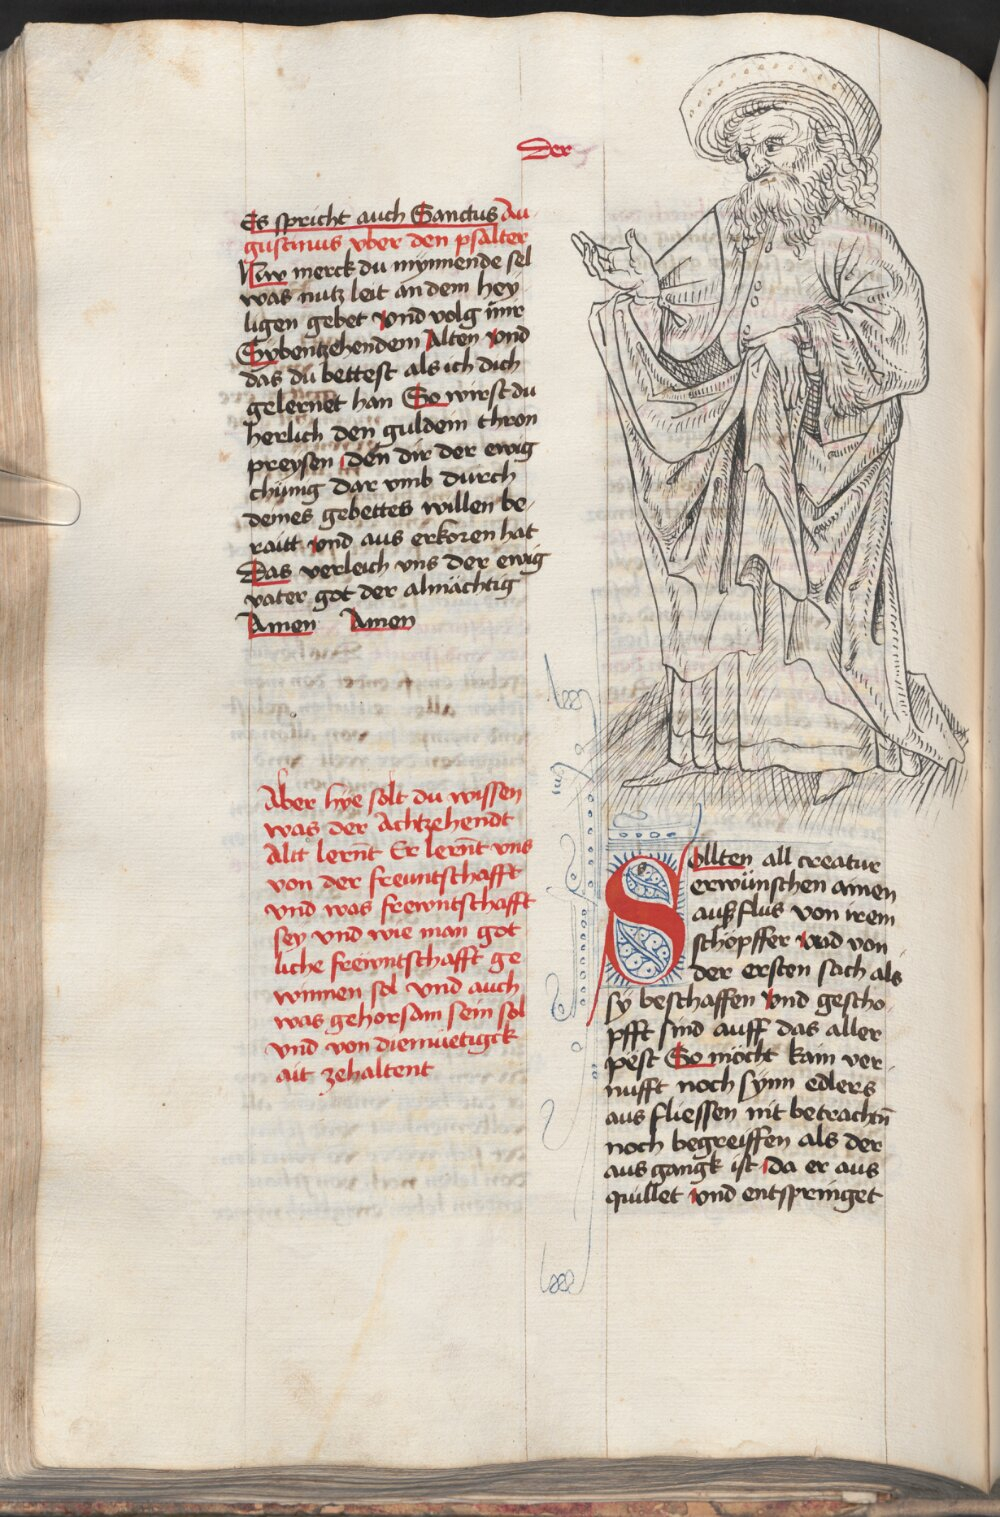 Der
Es spricht auch Sanctus Au-
gustinus vber den psalter
Nuw merck du mynnende sel
was nutz leit an dem hey
ligen gebet vnd volg imr
Sybentzehendem Alten vnd
das du bettest als ich dich
gelernet han So wirst du
herlich den guldein thron
preysen den dir der ewig
chünig dar vmb durch
deines gebettes willen be-
raitt vnd aus erkoren hat
Das verleich vns der ewig
vater got der almächtig
Amen Amen
Aber hye solt du wissen
was der Achtzehendt
Alt lernt Er lernt vns
von der freuntschafft
vnd was frewntschafft
sey vnd wie man got
liche frewntschafft ge
winnen sol vnd auch
was gehorsam sein sol
vnd von diemuetigck
ait zehaltent
Sollten all creatur
erwünschen ainen
ausflus von irem
schöpffer vnd von
der ersten sach als
sy beschaffen vnd gescho
pfft sind auff das aller
pest So möcht kain ver
nufft noch synn edlers
aus fliessen nit betrachtn̄
noch begreiffen als der
ausgangk ist da er aus
quillet vnd entspringet